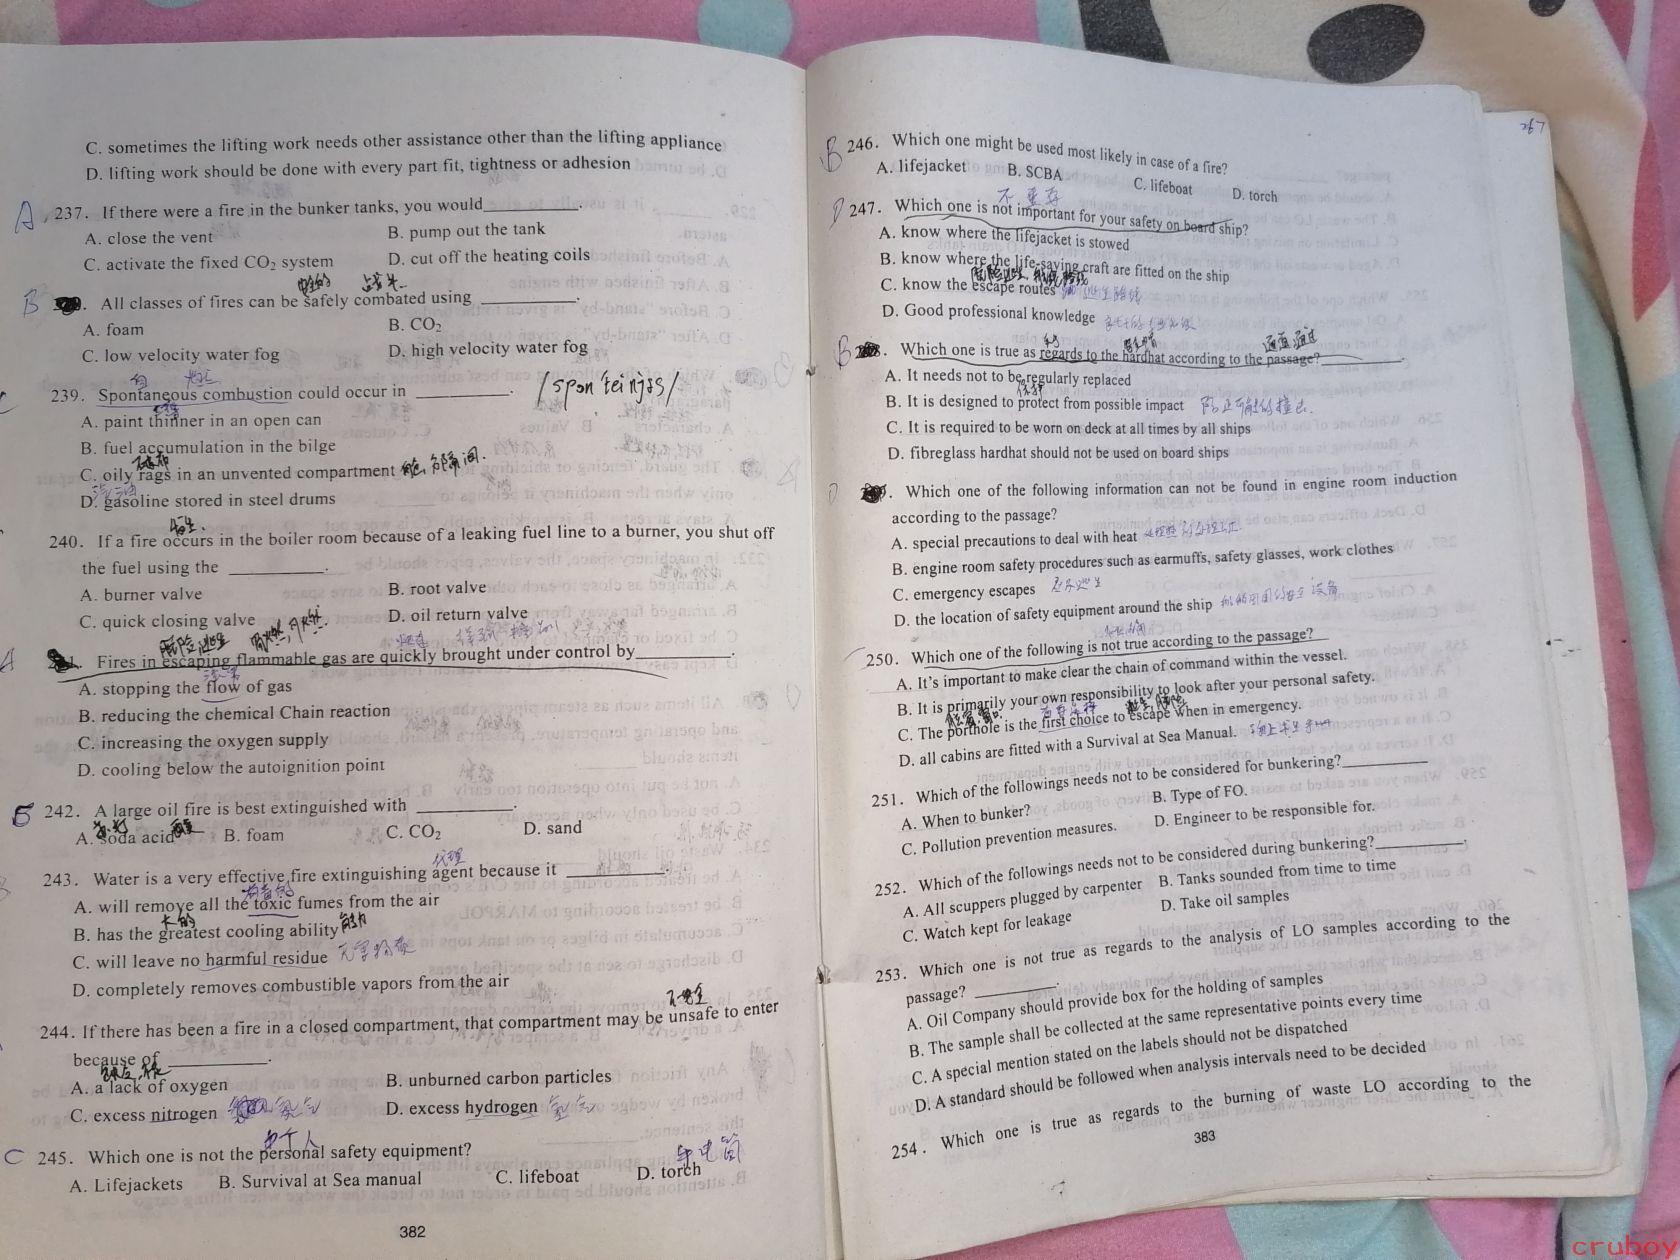 C. sometimes the lifting work needs other assistance other than the lifting appliance
D. lifting work should be done with every part fit, tightness or adhesion
A 237. If there were a fire in the bunker tanks, you would__________.
A. close the vent B. pump out the tank
C. activate the fixed CO₂ system D. cut off the heating coils
B All classes of fires can be safely combated using __________.
A. foam B. CO₂
C. low velocity water fog D. high velocity water fog
239. Spontaneous combustion could occur in __________.
A. paint thinner in an open can
B. fuel accumulation in the bilge
C. oily rags in an unvented compartment
汽油
D. gasoline stored in steel drums
240. If a fire occurs in the boiler room because of a leaking fuel line to a burner, you shut off
the fuel using the __________.
A. burner valve B. root valve
C. quick closing valve D. oil return valve
A Fires in escaping flammable gas are quickly brought under control by__________.
A. stopping the flow of gas
B. reducing the chemical Chain reaction
C. increasing the oxygen supply
D. cooling below the autoignition point
B 242. A large oil fire is best extinguished with __________.
A. soda acid B. foam C. CO₂ D. sand
代理
243. Water is a very effective fire extinguishing agent because it __________.
A. will remove all the toxic fumes from the air
大的 能力
B. has the greatest cooling ability
C. will leave no harmful residue
D. completely removes combustible vapors from the air
不安全
244. If there has been a fire in a closed compartment, that compartment may be unsafe to enter
because of __________.
A. a lack of oxygen B. unburned carbon particles
C. excess nitrogen 氮气 D. excess hydrogen 氢气
个人
C 245. Which one is not the personal safety equipment?
手电筒
A. Lifejackets B. Survival at Sea manual C. lifeboat D. torch
382
267
B 246. Which one might be used most likely in case of a fire?
A. lifejacket B. SCBA C. lifeboat D. torch
不重要
D 247. Which one is not important for your safety on board ship?
A. know where the lifejacket is stowed
B. know where the life-saving craft are fitted on the ship
C. know the escape routes 逃生路线
D. Good professional knowledge
B Which one is true as regards to the hardhat according to the passage?__________.
A. It needs not to be regularly replaced
B. It is designed to protect from possible impact
C. It is required to be worn on deck at all times by all ships
D. fibreglass hardhat should not be used on board ships
D Which one of the following information can not be found in engine room induction
according to the passage?
A. special precautions to deal with heat
B. engine room safety procedures such as earmuffs, safety glasses, work clothes
C. emergency escapes
D. the location of safety equipment around the ship
250. Which one of the following is not true according to the passage?
A. It's important to make clear the chain of command within the vessel.
B. It is primarily your own responsibility to look after your personal safety.
C. The porthole is the first choice to escape when in emergency.
D. all cabins are fitted with a Survival at Sea Manual.
251. Which of the followings need not to be considered for bunkering?__________
A. When to bunker? B. Type of FO.
C. Pollution prevention measures. D. Engineer to be responsible for.
252. Which of the followings needs not to be considered during bunkering?__________.
A. All scuppers plugged by carpenter B. Tanks sounded from time to time
C. Watch kept for leakage D. Take oil samples
253. Which one is not true as regards to the analysis of LO samples according to the
passage? __________.
A. Oil Company should provide box for the holding of samples
B. The sample shall be collected at the same representative points every time
C. A special mention stated on the labels should not be dispatched
D. A standard should be followed when analysis intervals need to be decided
254. Which one is true as regards to the burning of waste LO according to the
383
cruboy